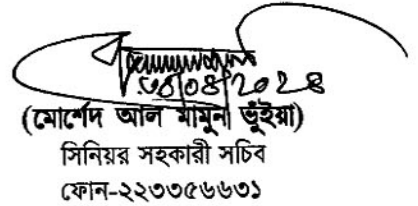 ০৪/০৪/২০২৪
(মোর্শেদ আল মামুন ভূঁইয়া)
সিনিয়র সহকারী সচিব
ফোন-২২৩৩৫৬৬৩১